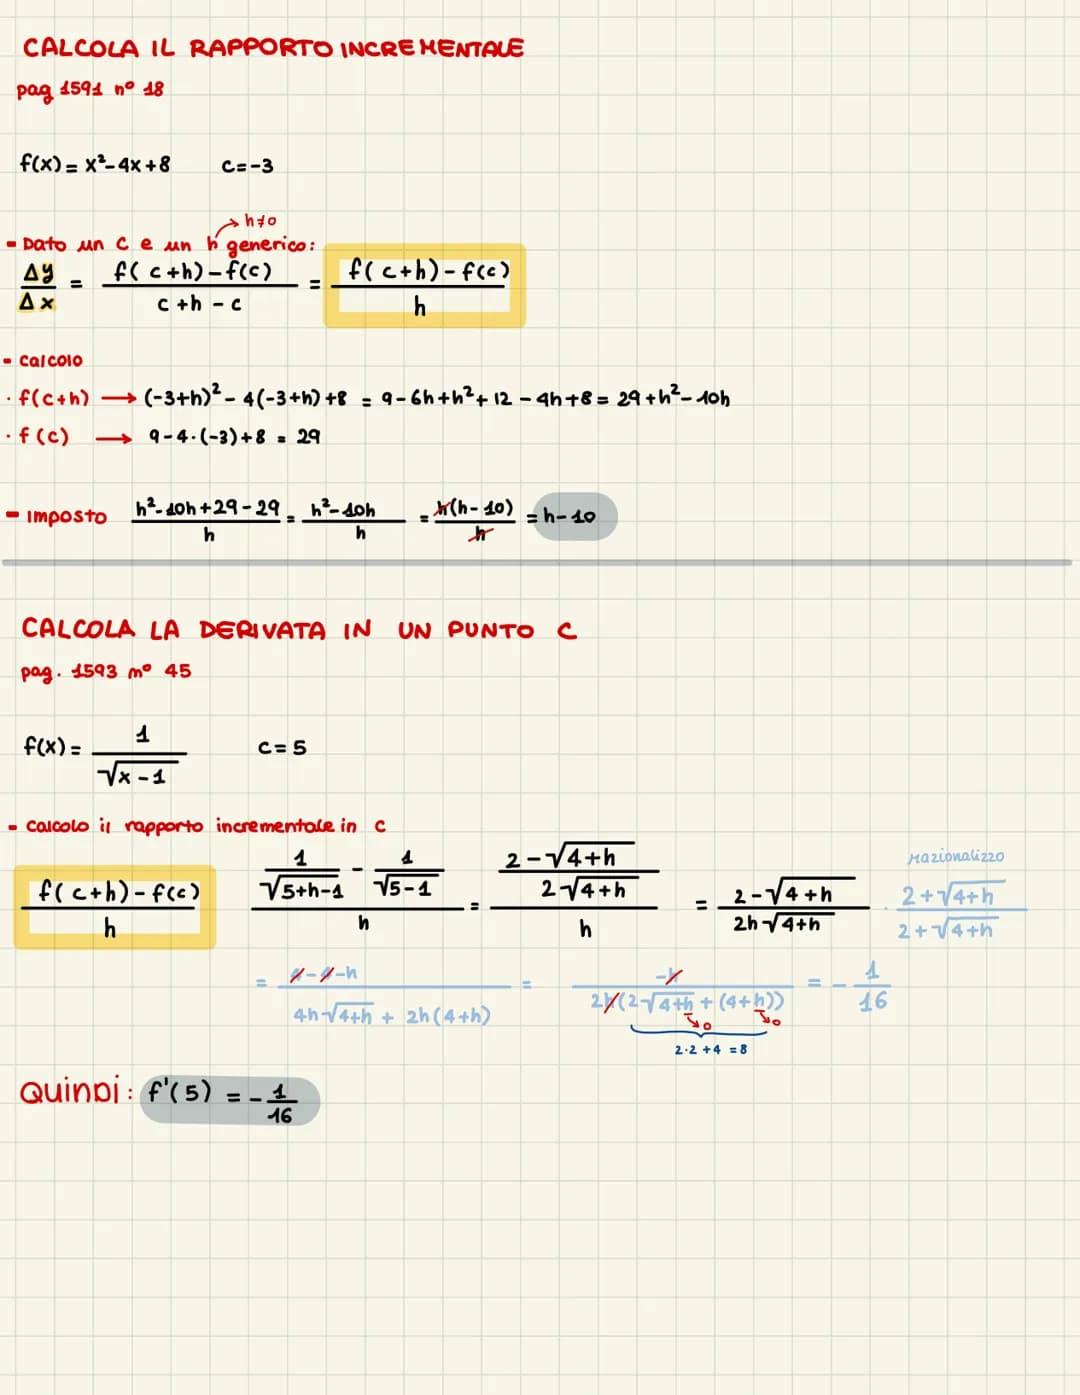 CALCOLA IL RAPPORTO INCREMENTALE
pag 1591 n° 18
f(x) = x²-4x+8 c=-3
h≠0
- Dato un c e un h generico:
Δy/Δx = (f(c+h)-f(c))/(c+h-c) = (f(c+h)-f(c))/h
- calcolo
· f(c+h) → (-3+h)²-4(-3+h)+8 = 9-6h+h²+12-4h+8 = 29+h²-10h
· f(c) → 9-4·(-3)+8 = 29
- imposto (h²-10h+29-29)/h = (h²-10h)/h = h(h-10)/h = h-10
CALCOLA LA DERIVATA IN UN PUNTO C
pag. 1593 n° 45
f(x) = 1/√(x-1) c=5
- calcolo il rapporto incrementale in c
razionalizzo
(f(c+h)-f(c))/h (1/√(5+h-1) - 1/√(5-1))/h = ((2-√(4+h))/(2√(4+h)))/h = (2-√(4+h))/(2h√(4+h)) · (2+√(4+h))/(2+√(4+h))
= (4-4-h)/(4h√(4+h) + 2h(4+h)) = -h/(2h(2√(4+h) + (4+h))) = -1/16
→0 →0
2·2+4 = 8
Quindi: f'(5) = -1/16